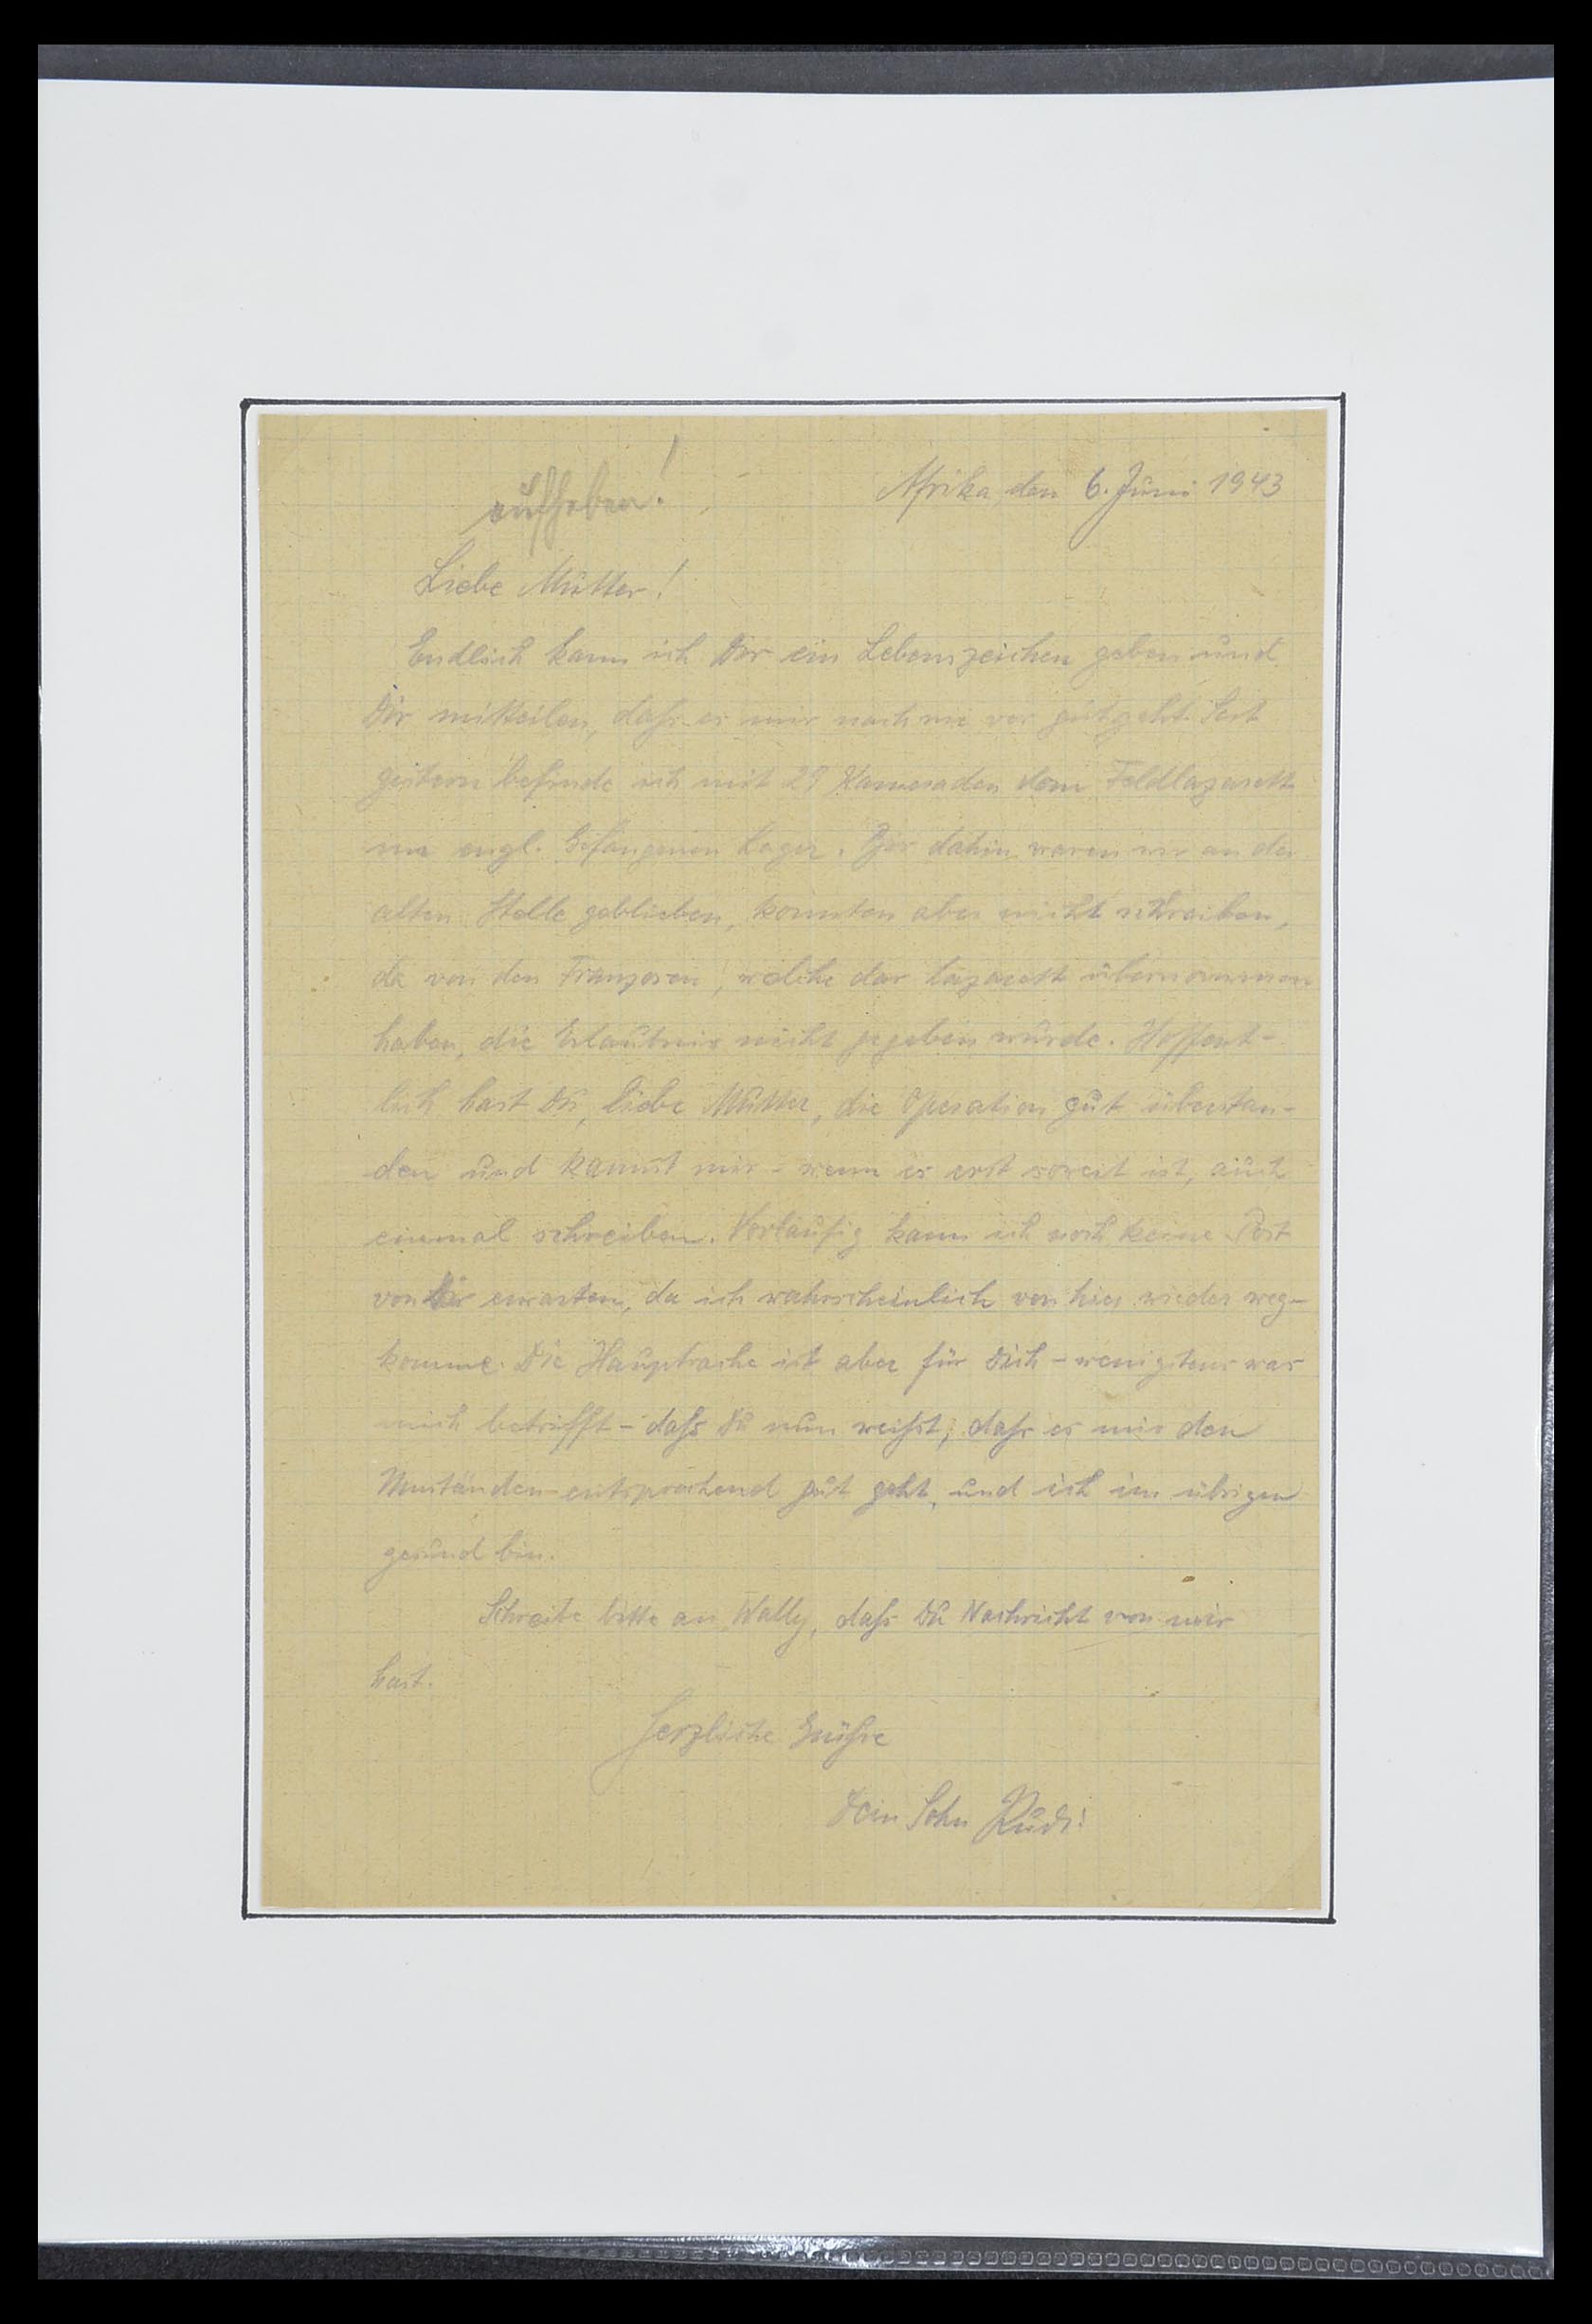 aufheben!
Afrika, den 6. Juni 1943
Liebe Mutter!
Endlich kann ich Dir ein Lebenszeichen geben und
Dir mitteilen, dass es mir nach wie vor gut geht. Seit
gestern befinde ich mit 29 Kameraden dem Feldlazarett
im engl. Gefangenen Lager. Bis dahin waren wir an der
alten Stelle geblieben, konnten aber nicht schreiben,
da von den Franzosen, welche das Lazarett übernommen
haben, die Erlaubnis nicht gegeben wurde. Hoffent-
lich hast Du, liebe Mutter, die Operation gut überstan-
den und kannst mir - wenn es erst soweit ist, auch
einmal schreiben. Vorläufig kann ich noch keine Post
von Dir erwarten, da ich wahrscheinlich von hier wieder weg-
komme. Die Hauptsache ist aber für Dich - wenigstens was
mich betrifft - dass Du nun weisst, dass es mir den
Umständen entsprechend gut geht, und ich im übrigen
gesund bin.
Schreibe bitte an Wally, dass Du Nachricht von mir
hast.
Herzliche Grüsse
Dein Sohn Rudi